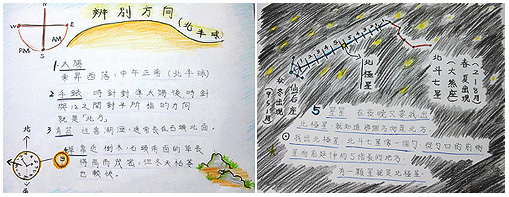 辨別方向
(北半球)
N
W E
S
PM AM
1. 太陽
東昇西落,中午正南(北半球)
2 手錶 時針對準太陽後時針
與12之間對半所指的方向
就是「北方」
3 青苔 性喜潮濕,通常長在石頭北面。
北
南
得高而茂密,但冬天枯萎
也較快。
北極星
北斗七星
(大熊座)
春夏出現
仙后座
5 星星 在夜晚只要找出
北極星就知道那個方向是北方。
找出北極星,北斗七星像一個勺,從勺口的前兩
星向前延伸約5倍長的地方,
有一顆星就是北極星